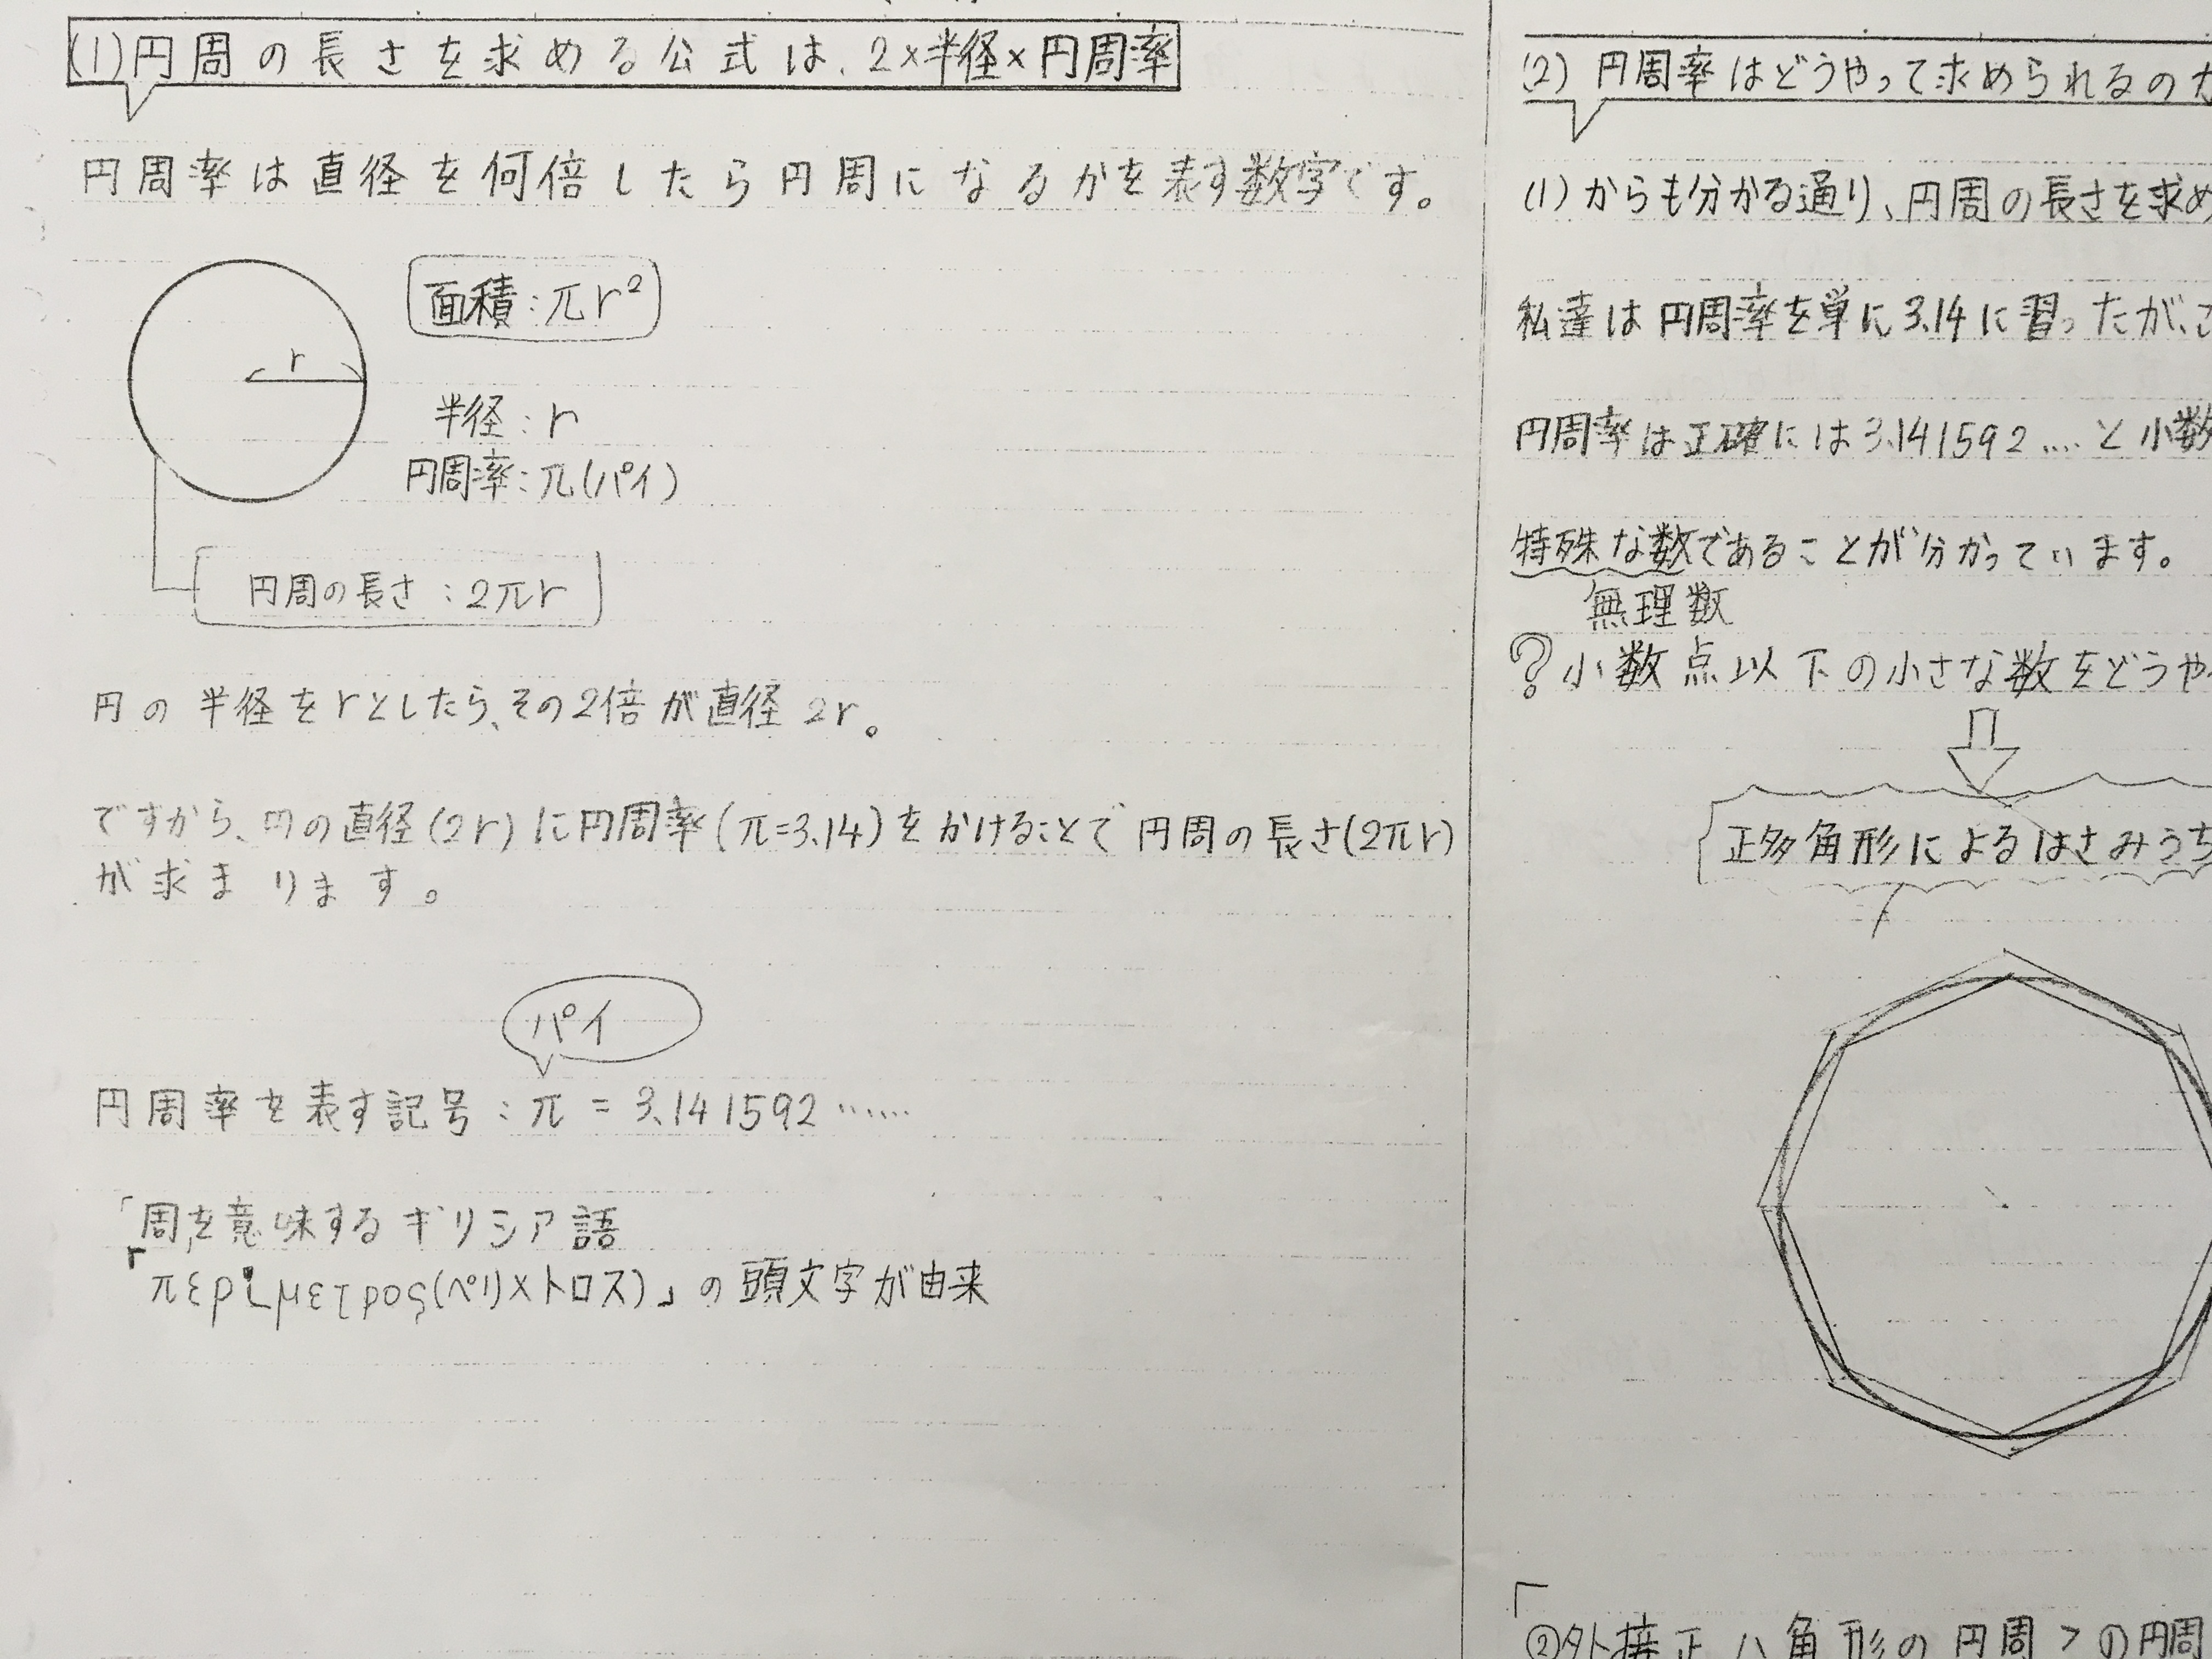 (1)円周の長さを求める公式は、2×半径×円周率
円周率は直径を何倍したら円周になるかを表す数字です。
面積:πr²
r
半径:r
円周率:π(パイ)
円周の長さ:2πr
円の半径をrとしたら、その2倍が直径2r。
ですから、円の直径(2r)に円周率(π=3.14)をかけることで円周の長さ(2πr)
が求まります。
パイ
円周率を表す記号:π=3.141592……
「周を意味するギリシア語
「περiμετρος(ペリメトロス)」の頭文字が由来
(2)円周率はどうやって求められるの
(1)からも分かる通り、円周の長さを求め
私達は円周率を単に3.14に習ったが、こ
円周率は正確には3.141592…と小数
特殊な数であることが分かっています。
無理数
?小数点以下の小さな数をどうや
正多角形によるはさみうち
「
②外接正八角形の円周>①円周